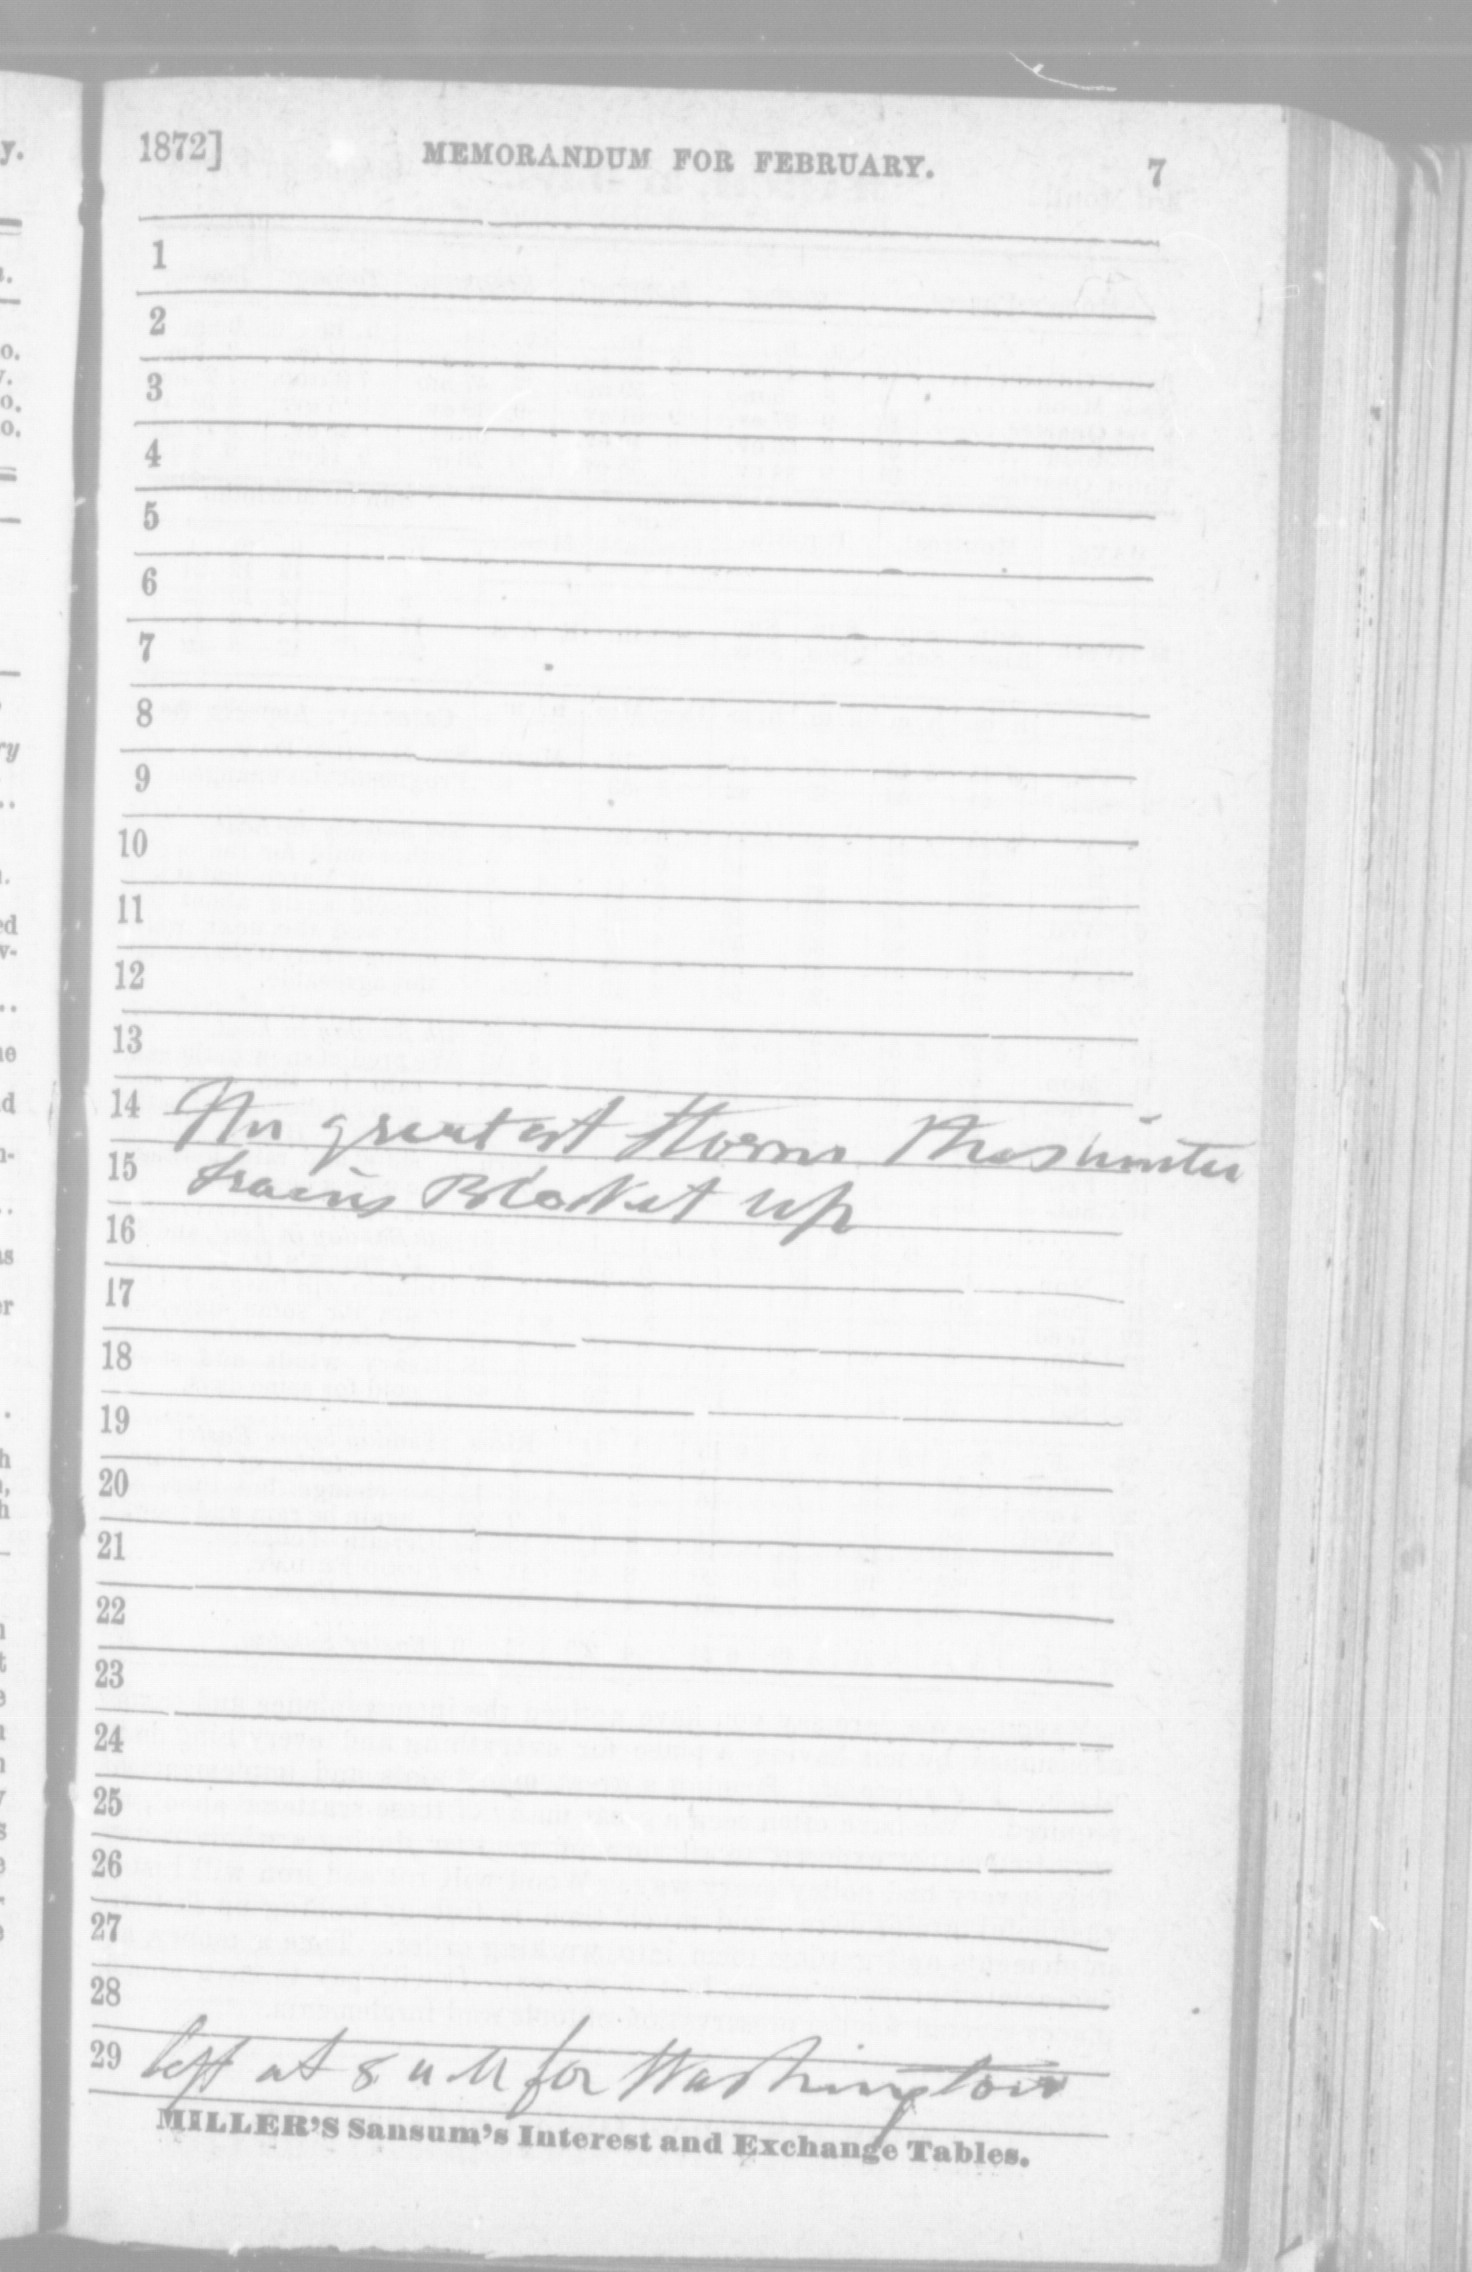 1872] MEMORANDUM FOR FEBRUARY. 7
1
2
3
4
5
6
7
8
9
10
11
12
13
14 The greatest Storm this winter
15 trains Blocket up
16
17
18
19
20
21
22
23
24
25
26
27
28
29 left at 8 a M for Washington
MILLER'S Sansum's Interest and Exchange Tables.